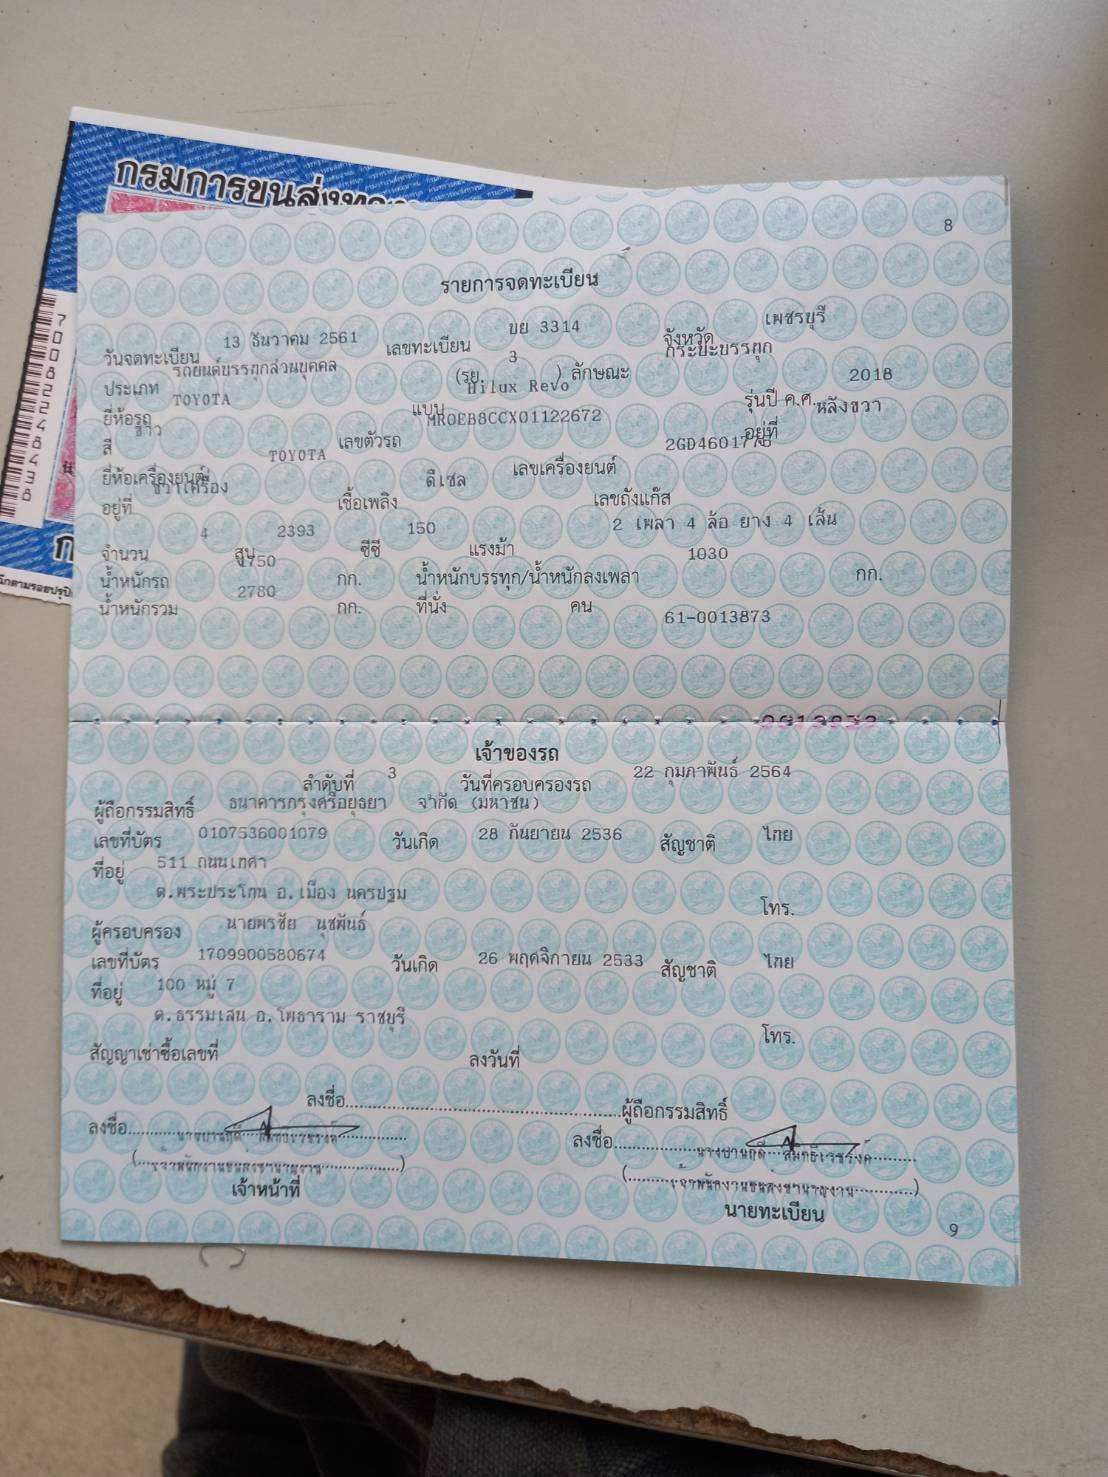 กรมการขนส่งทางบก
8
รายการจดทะเบียน
วันจดทะเบียน 13 ธันวาคม 2561 เลขทะเบียน ขย 3314 จังหวัด เพชรบุรี
ประเภท รถยนต์บรรทุกส่วนบุคคล (รย. 3 ) ลักษณะ กระบะบรรทุก
ยี่ห้อรถ TOYOTA แบบ Hilux Revo รุ่นปี ค.ศ. 2018
สี ขาว เลขตัวรถ MR0EB8CCX01122672 อยู่ที่ หลังขวา
ยี่ห้อเครื่องยนต์ TOYOTA เลขเครื่องยนต์
อยู่ที่ ขวาเครื่อง เชื้อเพลิง ดีเซล เลขถังแก๊ส
จำนวน 4 สูบ 2393 ซีซี 150 แรงม้า 2 เพลา 4 ล้อ ยาง 4 เส้น
น้ำหนักรถ 1750 กก. น้ำหนักบรรทุก/น้ำหนักลงเพลา 1030 กก.
น้ำหนักรวม 2780 กก. ที่นั่ง คน 61-0013873
เจ้าของรถ
ลำดับที่ 3 วันที่ครอบครองรถ 22 กุมภาพันธ์ 2564
ผู้ถือกรรมสิทธิ์ ธนาคารกรุงศรีอยุธยา จำกัด (มหาชน)
เลขที่บัตร 0107536001079 วันเกิด 28 กันยายน 2536 สัญชาติ ไทย
ที่อยู่ 511 ถนนเทศา
ต.พระประโทน อ.เมือง นครปฐม
โทร.
ผู้ครอบครอง นายพรชัย นุชพันธ์
เลขที่บัตร 1709900580674 วันเกิด 26 พฤศจิกายน 2533 สัญชาติ ไทย
ที่อยู่ 100 หมู่ 7
ต.ธรรมเสน อ.โพธาราม ราชบุรี
โทร.
สัญญาเช่าซื้อเลขที่ ลงวันที่
ลงชื่อ ผู้ถือกรรมสิทธิ์
ลงชื่อ ลงชื่อ
เจ้าหน้าที่ นายทะเบียน
9